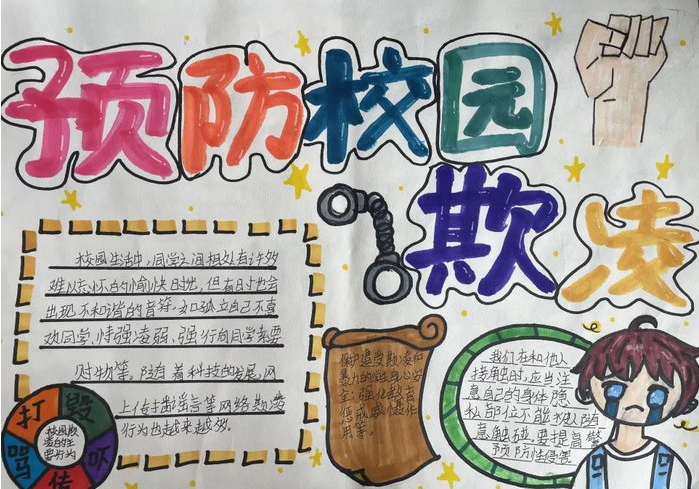 预防校园
欺凌
校园生活中,同学之间相处有许多
难以忘怀的愉快时光,但有时也会
出现不和谐的音符,如孤立自己不喜
欢同学,恃强凌弱,强行向同学索要
财物等。随着科技的发展,网
上传播谣言等网络欺凌
行为也越来越多
打 毁
骂 吓
传
校园欺
凌的主
要行为
保护遭受欺凌和
暴力的学生身心安
全,强化教育
惩戒威慑作
用等。
我们在和他人
接触时,应当注
意自己的身体隐
私部位不能被人随
意触碰,要提高警
预防性侵害